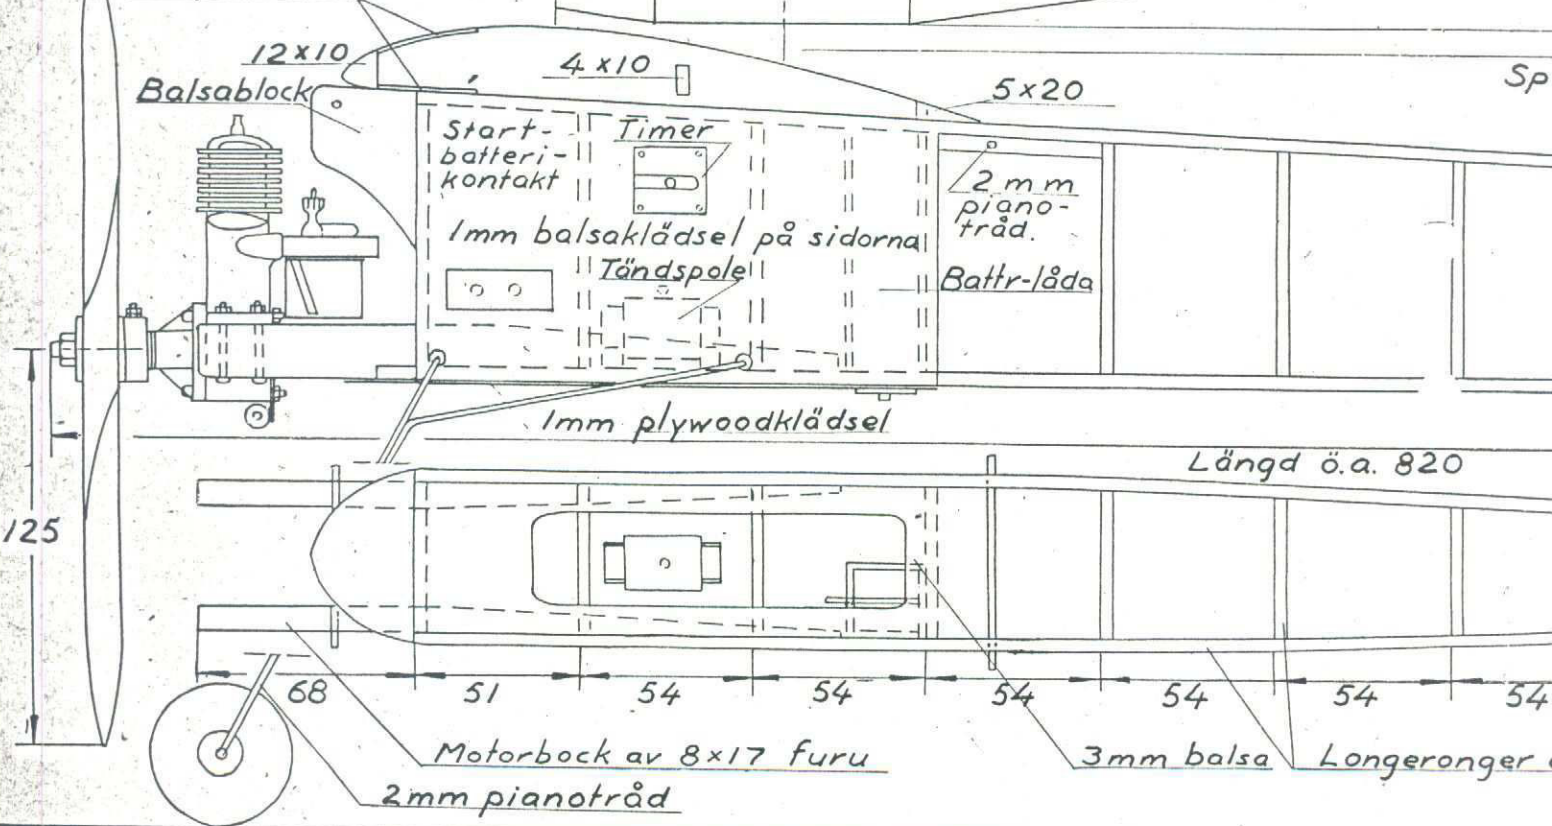 12×10
4×10
Sp
Balsablock
5×20
Start-
batteri-
kontakt
Timer
2 mm
piano-
tråd.
1mm balsaklädsel på sidorna
Tändspole
Battr-låda
1mm plywoodklädsel
Längd ö.a. 820
125
68 51 54 54 54 54 54 54
Motorbock av 8×17 furu
3mm balsa
Longeronger
2mm pianotråd